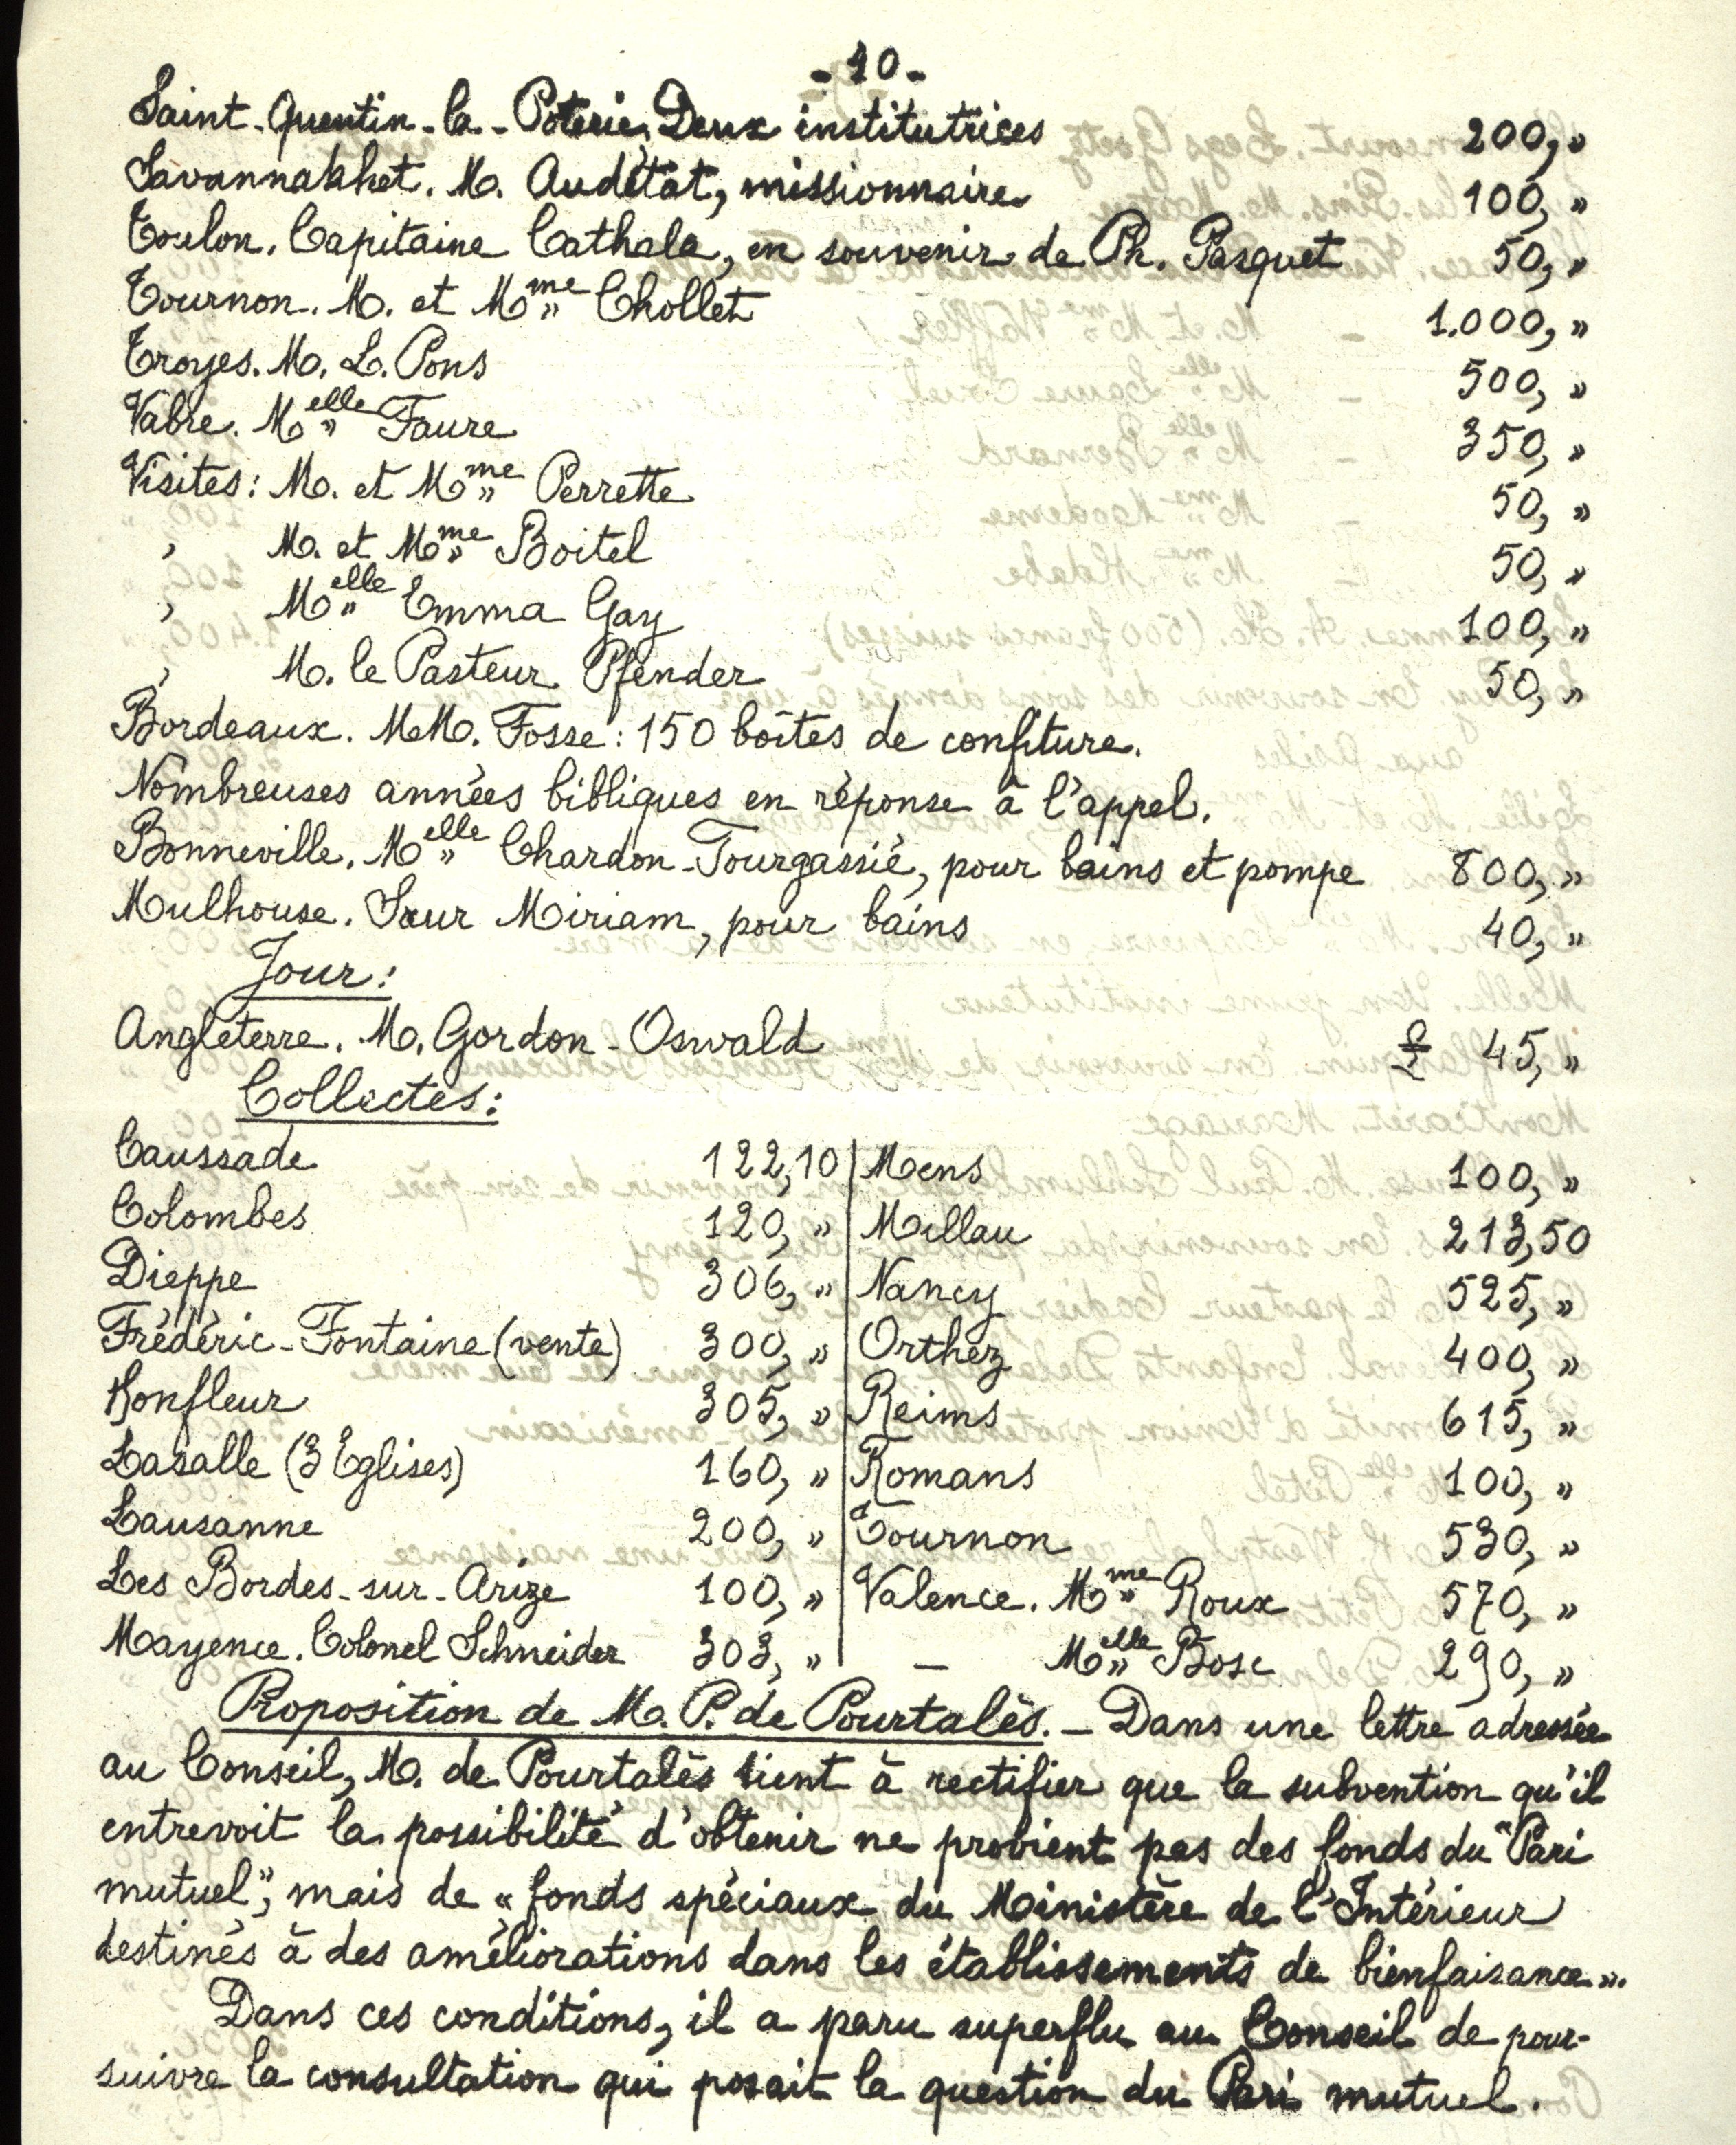 - 10 -
Saint-Quentin-la-Poterie, Deux institutrices 200, "
Savannakhet. M. Audétat, missionnaire 100, "
Toulon. Capitaine Cathala, en souvenir de Ph. Pasquet 50, "
Tournon. M. et Mme Chollet 1.000, "
Troyes. M. L. Pons 500, "
Vabre. Melle Faure 350, "
Visites: M. et Mme Perrette 50, "
, M. et Mme Boitel 50, "
, Melle Emma Gay 100, "
, M. le Pasteur Pfender 50, "
Bordeaux. MM. Fosse: 150 boîtes de confiture.
Nombreuses années bibliques en réponse à l'appel.
Bonneville. Melle Chardon-Tourgassié, pour bains et pompe 800, "
Mulhouse. Sœur Miriam, pour bains 40, "
Jour:
Angleterre. M. Gordon-Oswald £ 45, "
Collectes:
Caussade 122,10 | Mens 100, "
Colombes 120, " | Millau 213,50
Dieppe 306, " | Nancy 525, "
Frédéric-Fontaine (vente) 300, " | Orthez 400, "
Honfleur 305, " | Reims 615, "
Lasalle (3 Eglises) 160, " | Romans 100, "
Lausanne 200, " | Tournon 530, "
Les Bordes-sur-Arize 100, " | Valence. Mme Roux 570, "
Mayence. Colonel Schneider 303, " | — Melle Bosc 290, "
Proposition de M. P. de Pourtalès. - Dans une lettre adressée
au Conseil, M. de Pourtalès tient à rectifier que la subvention qu'il
entrevoit la possibilité d'obtenir ne provient pas des fonds du "Pari
mutuel", mais de « fonds spéciaux du Ministère de l'Intérieur
destinés à des améliorations dans les établissements de bienfaisance ».
Dans ces conditions, il a paru superflu au Conseil de pour-
suivre la consultation qui posait la question du Pari mutuel.